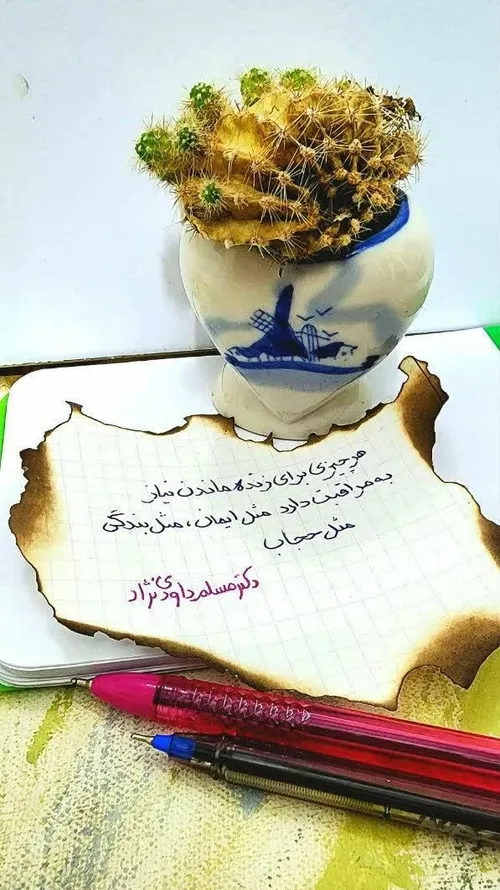 هر چیزی برای زنده ماندن نیاز
به مراقبت دارد مثل ایمان، مثل بندگی
مثل حجاب
دکتر مسلم داودی نژاد